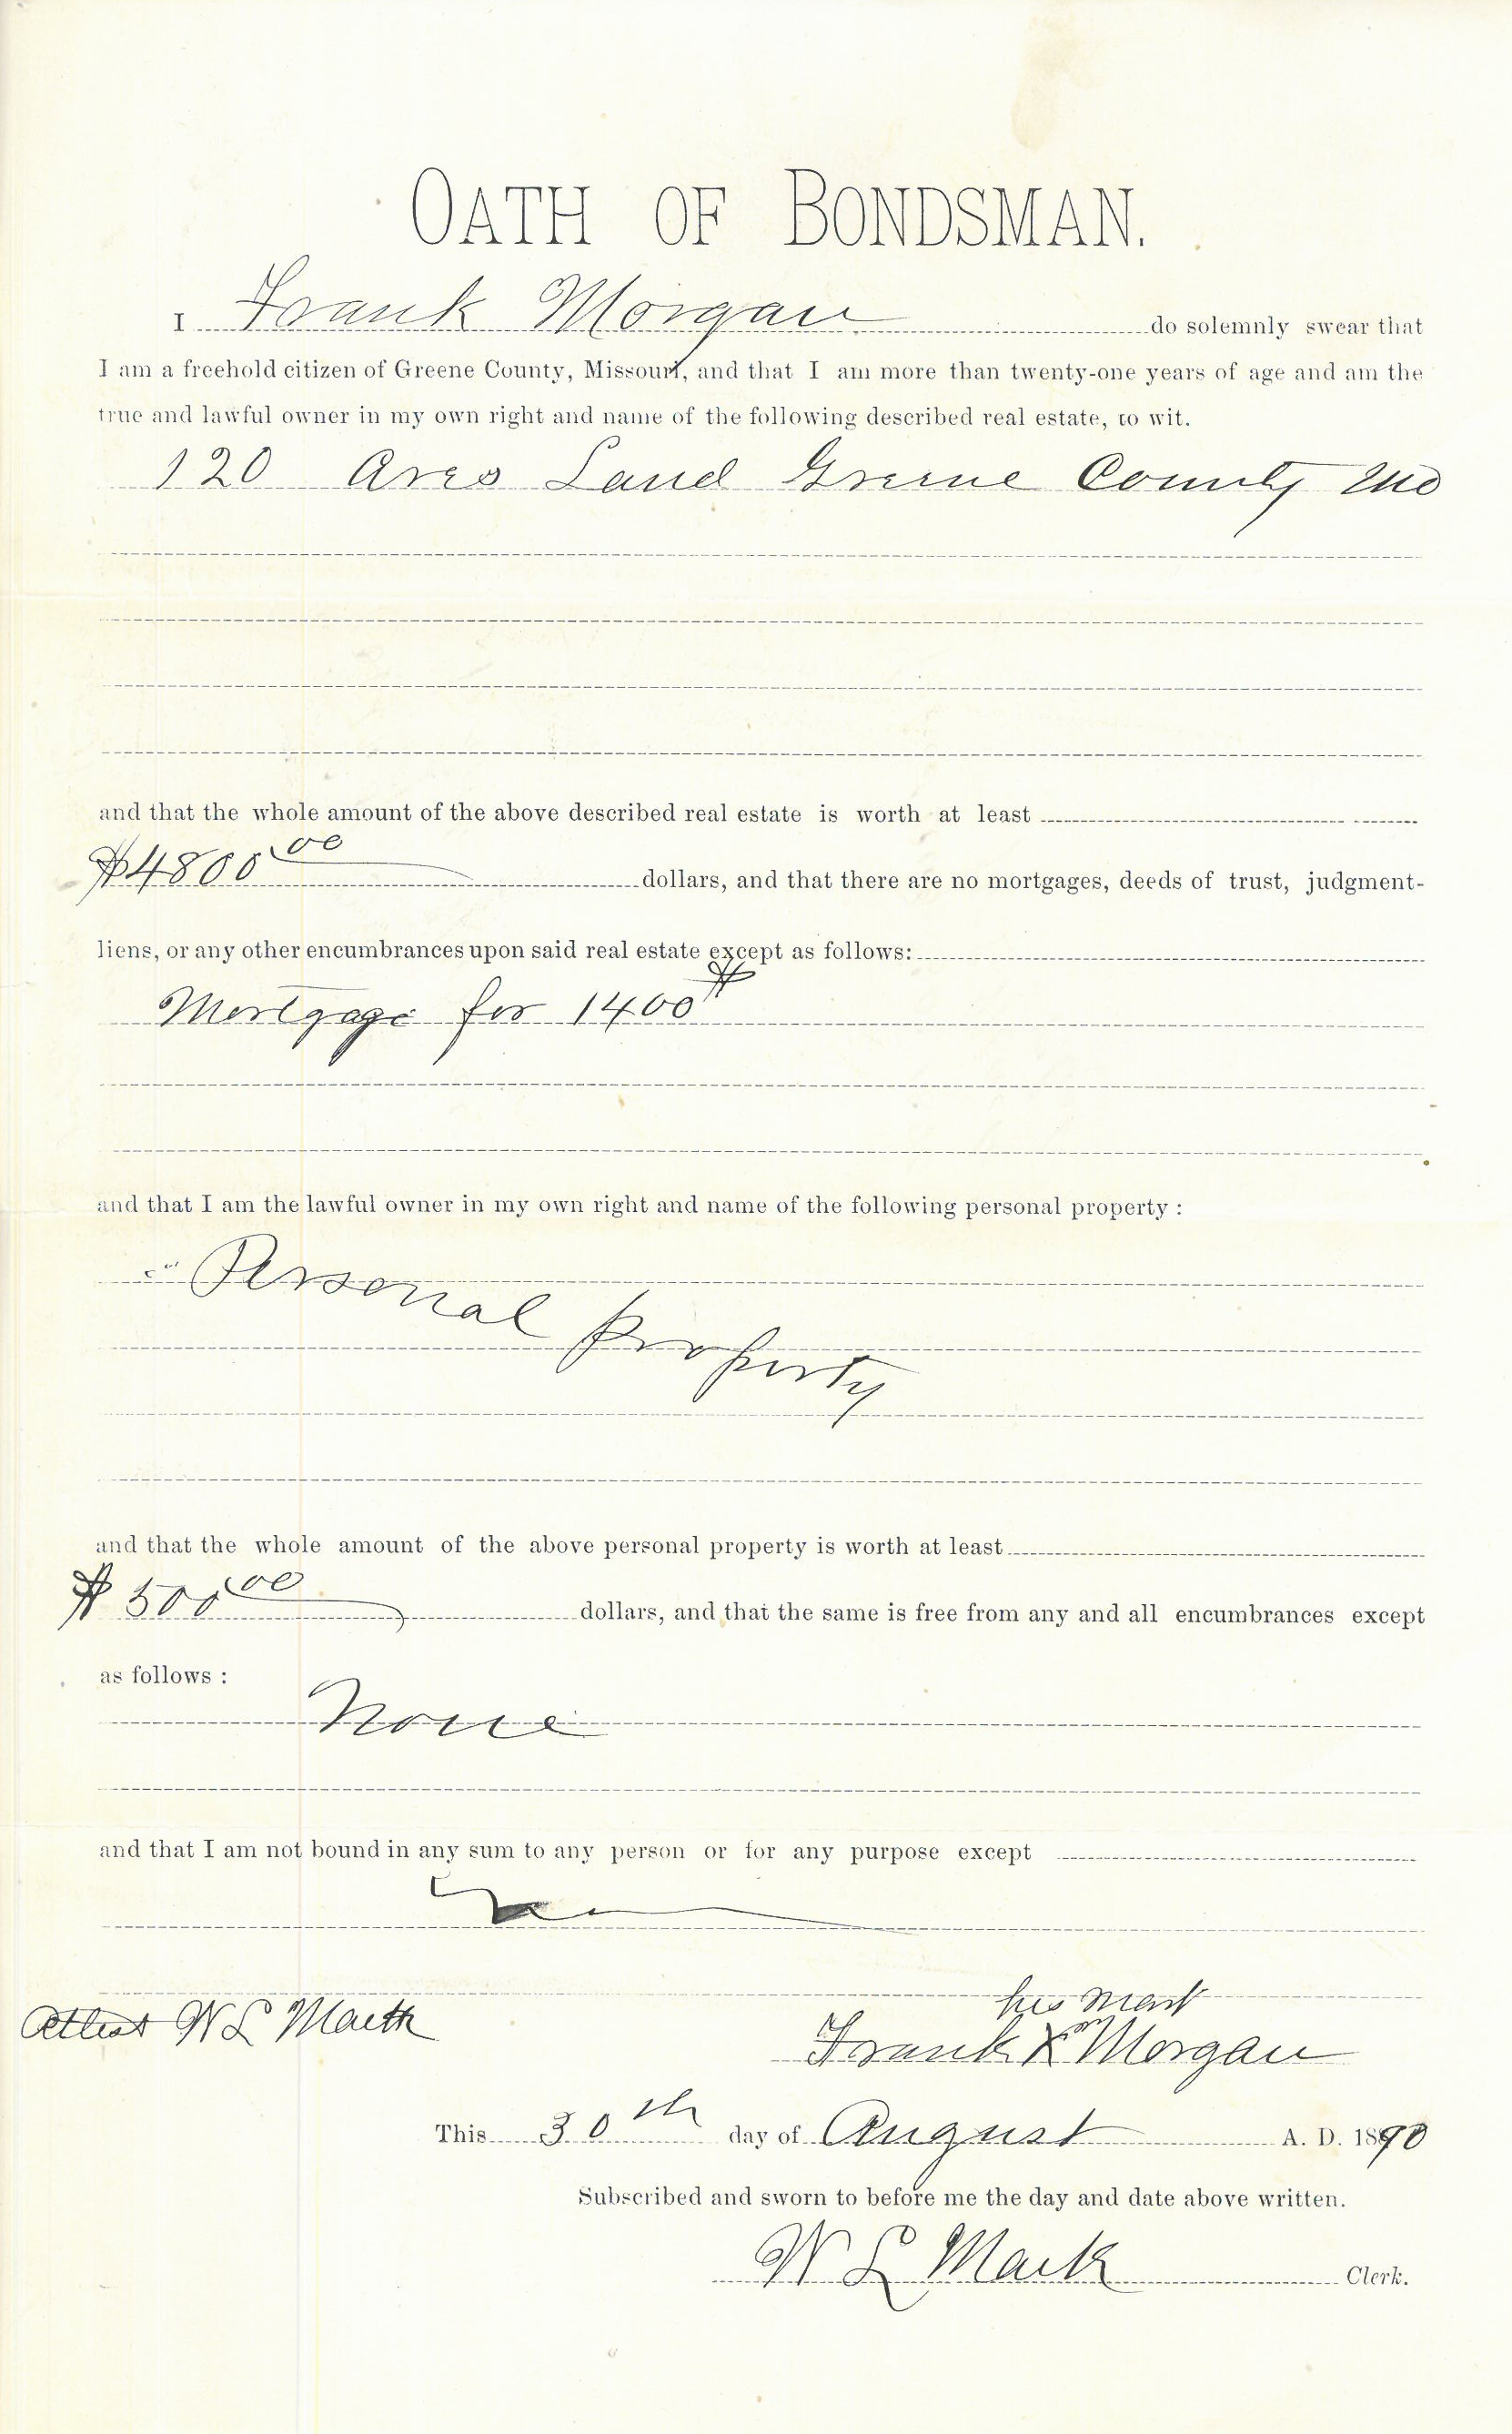 OATH OF BONDSMAN.
I Frank Morgan do solemnly swear that
I am a freehold citizen of Greene County, Missouri, and that I am more than twenty-one years of age and am the
true and lawful owner in my own right and name of the following described real estate, to wit.
120 Acres Land Greene County Mo
and that the whole amount of the above described real estate is worth at least
$4800 00 dollars, and that there are no mortgages, deeds of trust, judgment-
liens, or any other encumbrances upon said real estate except as follows:
Mortgage for 1400 $
and that I am the lawful owner in my own right and name of the following personal property :
Personal
property
and that the whole amount of the above personal property is worth at least
$ 500 00 dollars, and that the same is free from any and all encumbrances except
as follows :
None
and that I am not bound in any sum to any person or for any purpose except
his mark
Attest W L Mack
Frank X Morgan
This 30th day of August A. D. 1890
Subscribed and sworn to before me the day and date above written.
W L Mack Clerk.